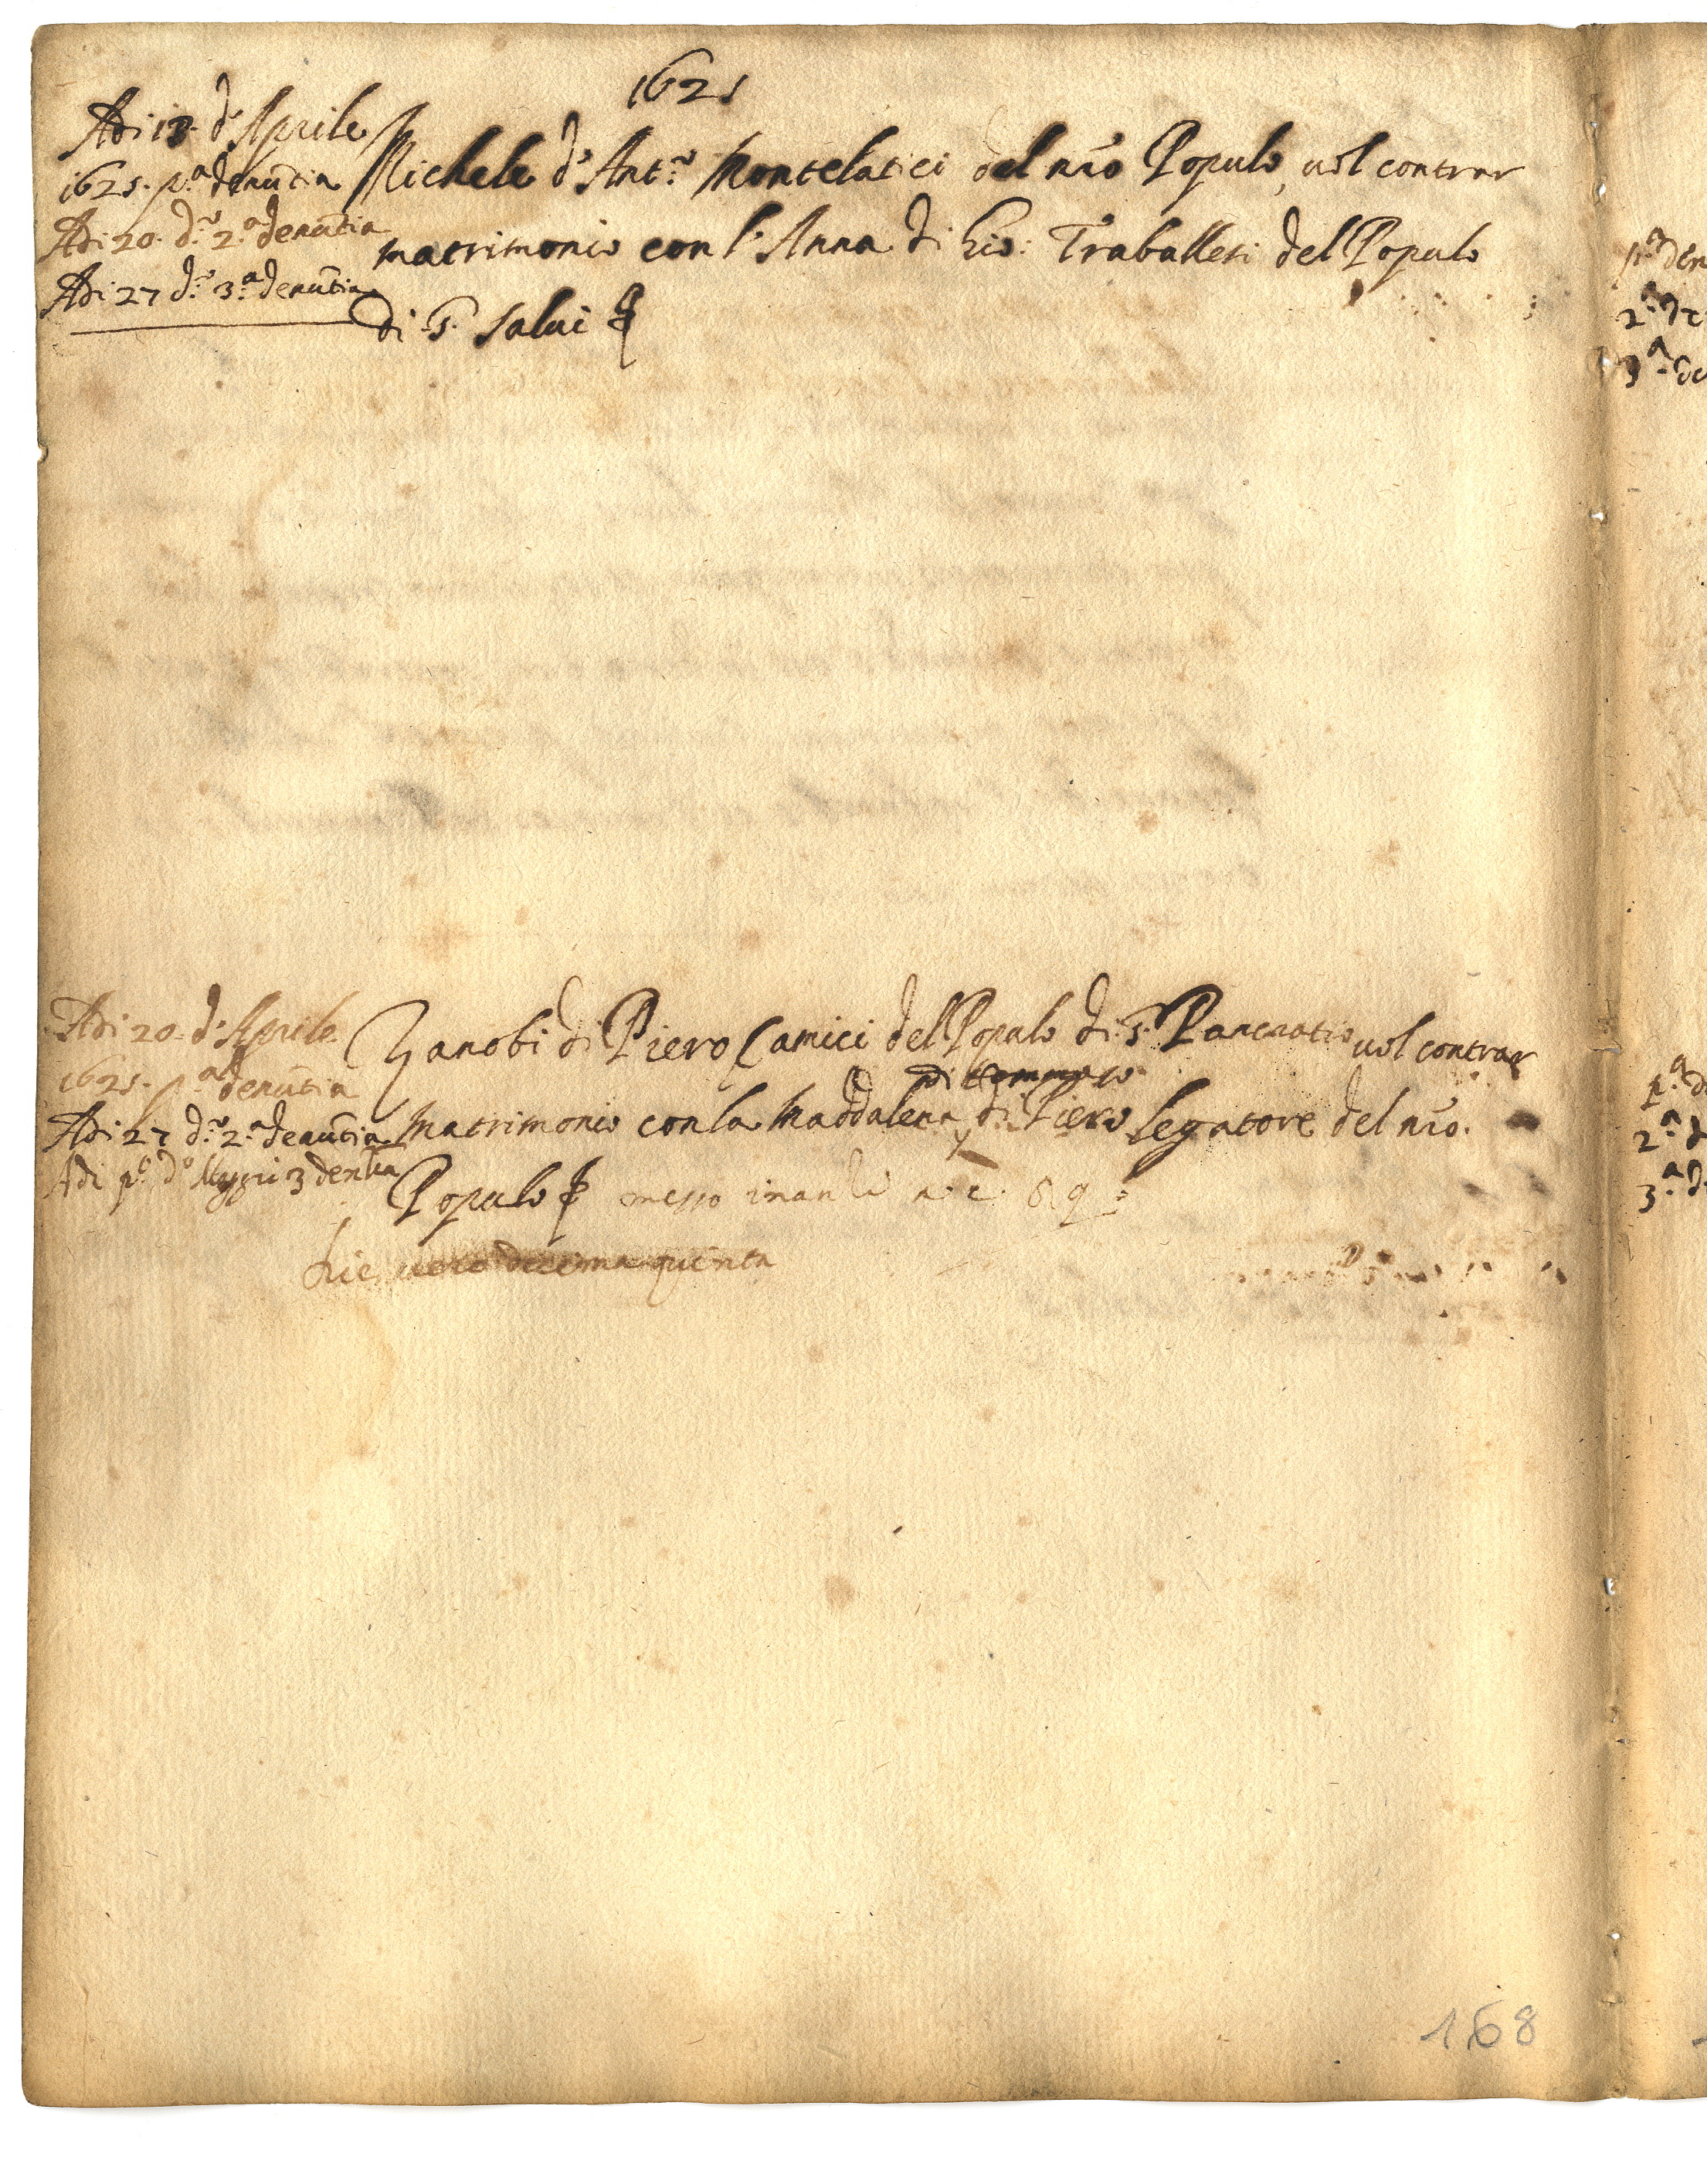 1625
Adi 13. d'Aprile
1625. p.a denūtia
Adi 20. d.o 2.a denūtia
Adi 27 d.o 3.a denūtia
Michele d'Ant.o Montelatici del nr̄o Populo, vol contrar
matrimonio con l'Anna di Gio: Traballesi del Populo
di S. Salvi
Adi 20. d'Aprile
1625. p.a denūtia
Adi 27 d.o 2.a denūtia
Adi p.o d Maggio 3 denūtia
Zanobi di Piero Camici del Populo di S. Pancratio vol contrar
di Tommaso
matrimonio con la Maddalena di Piero legatore del nr̄o.
Populo messo inanti a c. 89
hic vero decima quinta
168
p.a den
2.a de
3.a de
p.a d
2.a d
3.a d